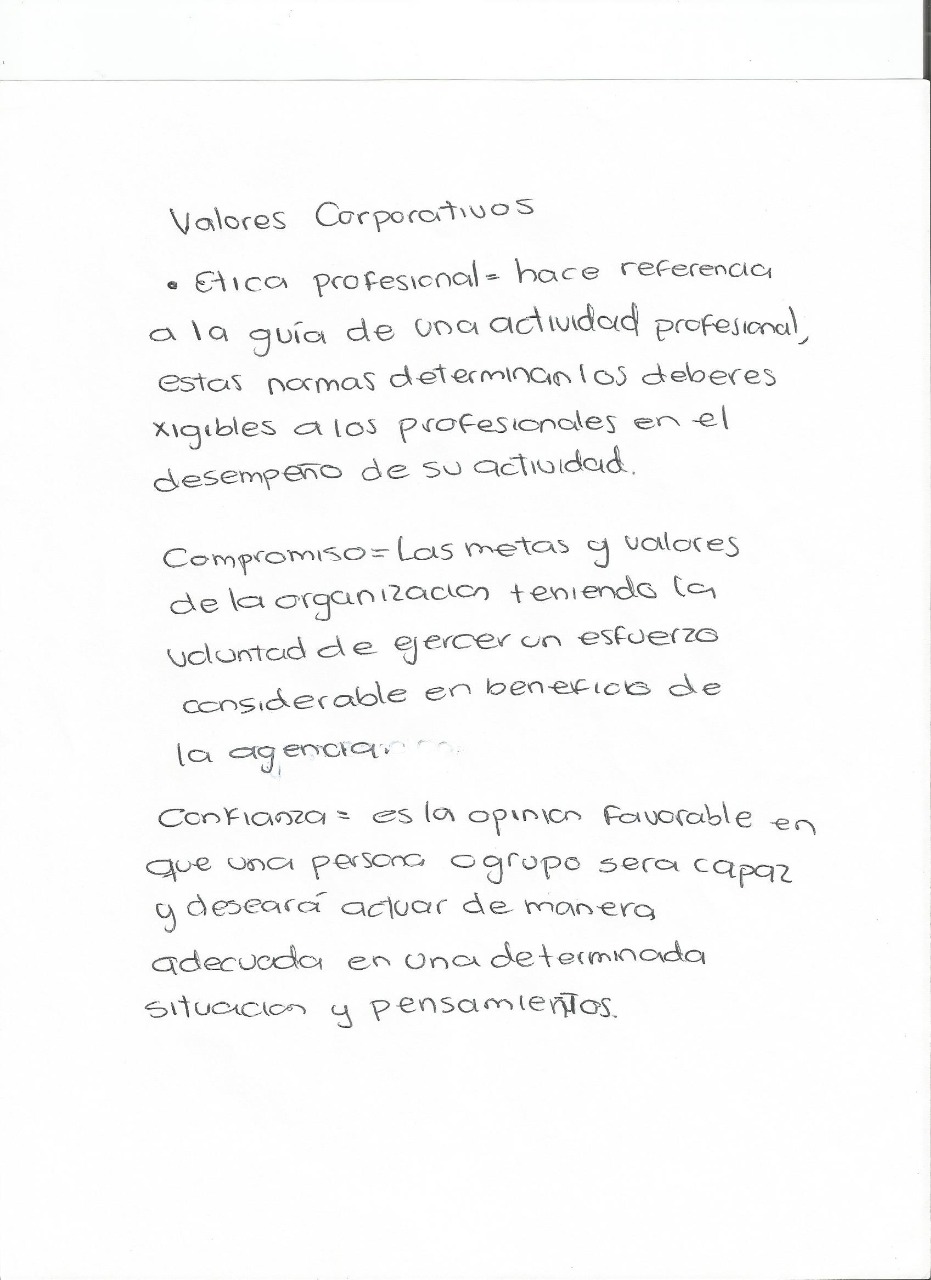 Valores Corporativos
• Etica profesional = hace referencia
a la guía de una actividad profesional,
estas normas determinan los deberes
xigibles a los profesionales en el
desempeño de su actividad.
Compromiso = Las metas y valores
de la organizacion teniendo la
voluntad de ejercer un esfuerzo
considerable en beneficio de
la agencia.
Confianza = es la opinion favorable en
que una persona o grupo sera capaz
y deseará actuar de manera
adecuada en una determinada
situacion y pensamientos.